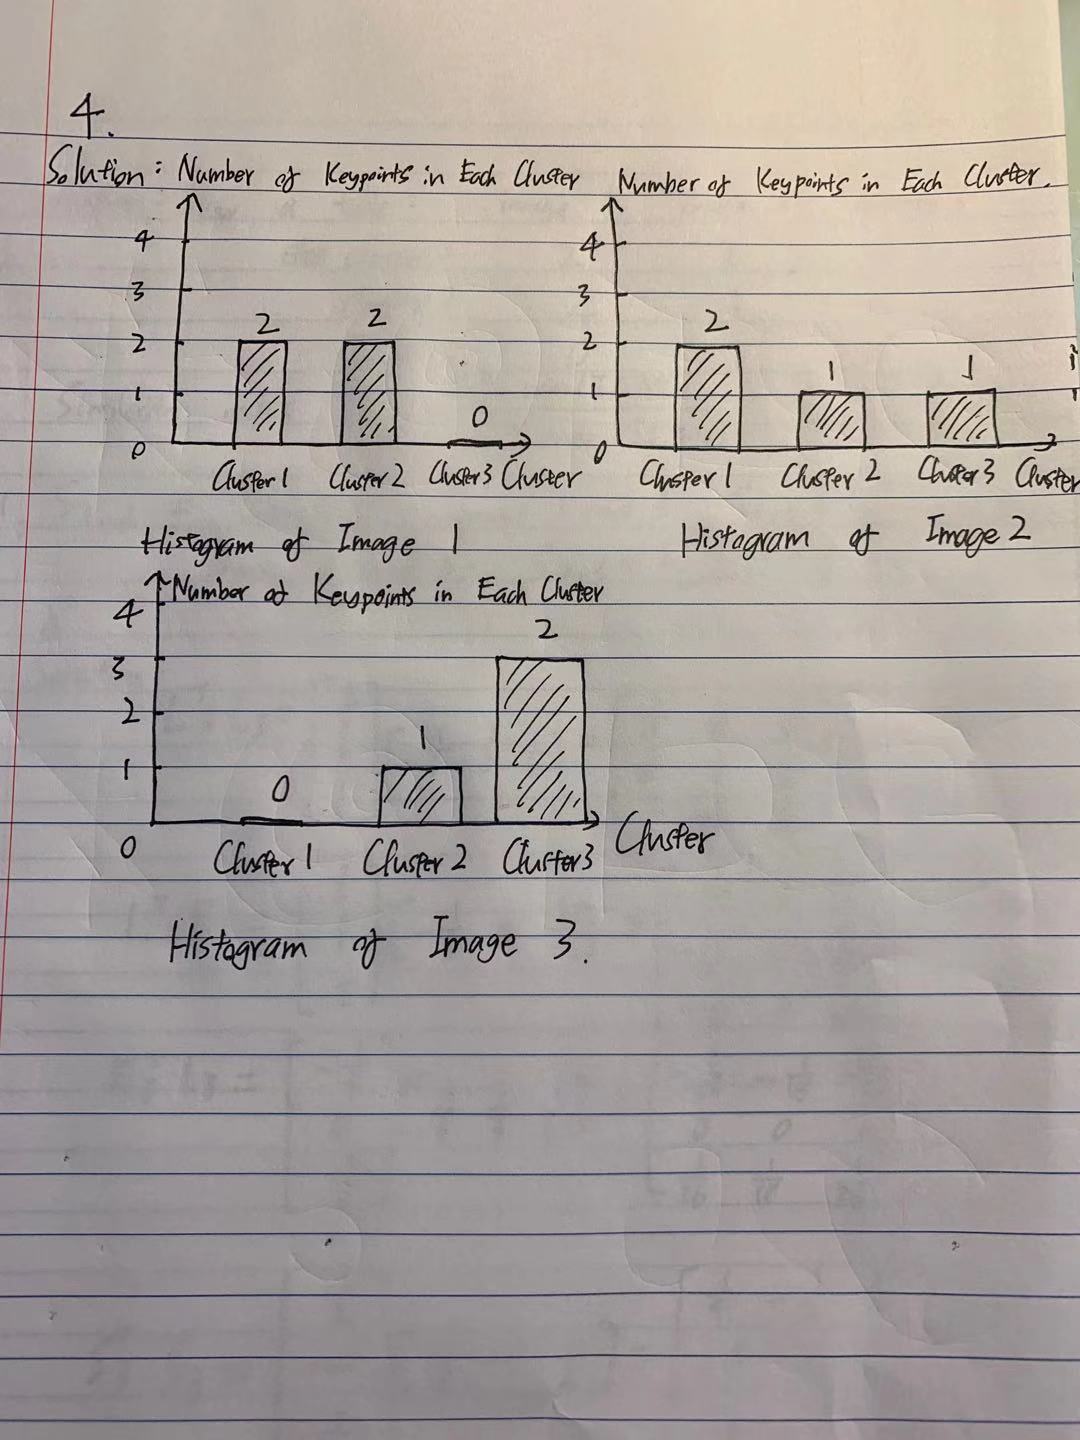 4.
Solution: Number of Keypoints in Each Cluster
4
3
2
1
0
2
2
0
Cluster 1 Cluster 2 Cluster 3 Cluster
Histogram of Image 1
Number of Keypoints in Each Cluster.
4
3
2
1
0
2
1
1
Cluster 1 Cluster 2 Cluster 3 Cluster
Histogram of Image 2
Number of Keypoints in Each Cluster
4
3
2
1
0
0
1
2
Cluster 1 Cluster 2 Cluster 3 Cluster
Histogram of Image 3.